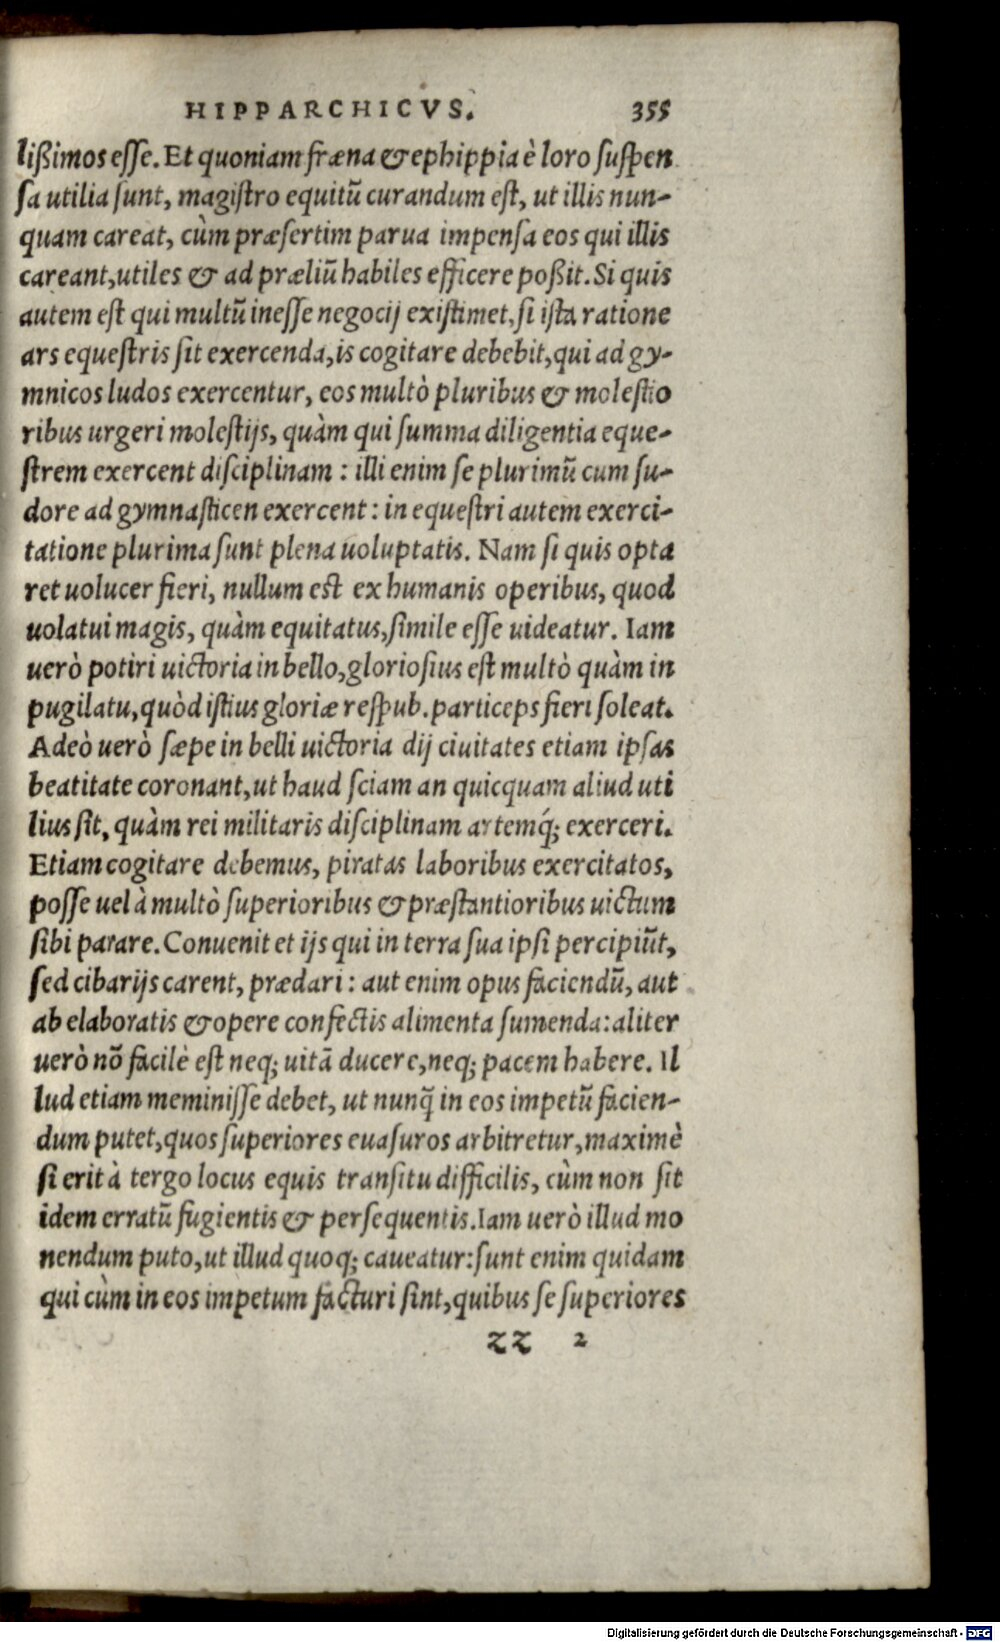 HIPPARCHICVS. 355
lißimos esse. Et quoniam fræna & ephippia è loro suspen
sa utilia sunt, magistro equitũ curandum est, ut illis nun-
quam careat, cùm præsertim parua impensa eos qui illis
careant, utiles & ad præliũ habiles efficere poßit. Si quis
autem est qui multũ inesse negocij existimet, si ista ratione
ars equestris sit exercenda, is cogitare debebit, qui ad gy-
mnicos ludos exercentur, eos multò pluribus & molestio
ribus urgeri molestijs, quàm qui summa diligentia eque-
strem exercent disciplinam : illi enim se plurimũ cum su-
dore ad gymnasticen exercent : in equestri autem exerci-
tatione plurima sunt plena uoluptatis. Nam si quis opta
ret uolucer fieri, nullum est ex humanis operibus, quod
uolatui magis, quàm equitatus, simile esse uideatur. Iam
uerò potiri uictoria in bello, gloriosius est multò quàm in
pugilatu, quòd istius gloriæ respub. particeps fieri soleat.
Adeò uerò sæpe in belli uictoria dij ciuitates etiam ipsas
beatitate coronant, ut haud sciam an quicquam aliud uti
lius sit, quàm rei militaris disciplinam artemq́; exerceri.
Etiam cogitare debemus, piratas laboribus exercitatos,
posse uel à multò superioribus & præstantioribus uictum
sibi parare. Conuenit et ijs qui in terra sua ipsi percipiũt,
sed cibarijs carent, prædari : aut enim opus faciendũ, aut
ab elaboratis & opere confectis alimenta sumenda: aliter
uerò nõ facilè est neq; uitã ducere, neq; pacem habere. Il
lud etiam meminisse debet, ut nunq̃ in eos impetũ facien-
dum putet, quos superiores euasuros arbitretur, maximè
si erit à tergo locus equis transitu difficilis, cùm non sit
idem erratũ fugientis & persequentis. Iam uerò illud mo
nendum puto, ut illud quoq; caueatur: sunt enim quidam
qui cùm in eos impetum facturi sint, quibus se superiores
zz 2
Digitalisierung gefördert durch die Deutsche Forschungsgemeinschaft - DFG